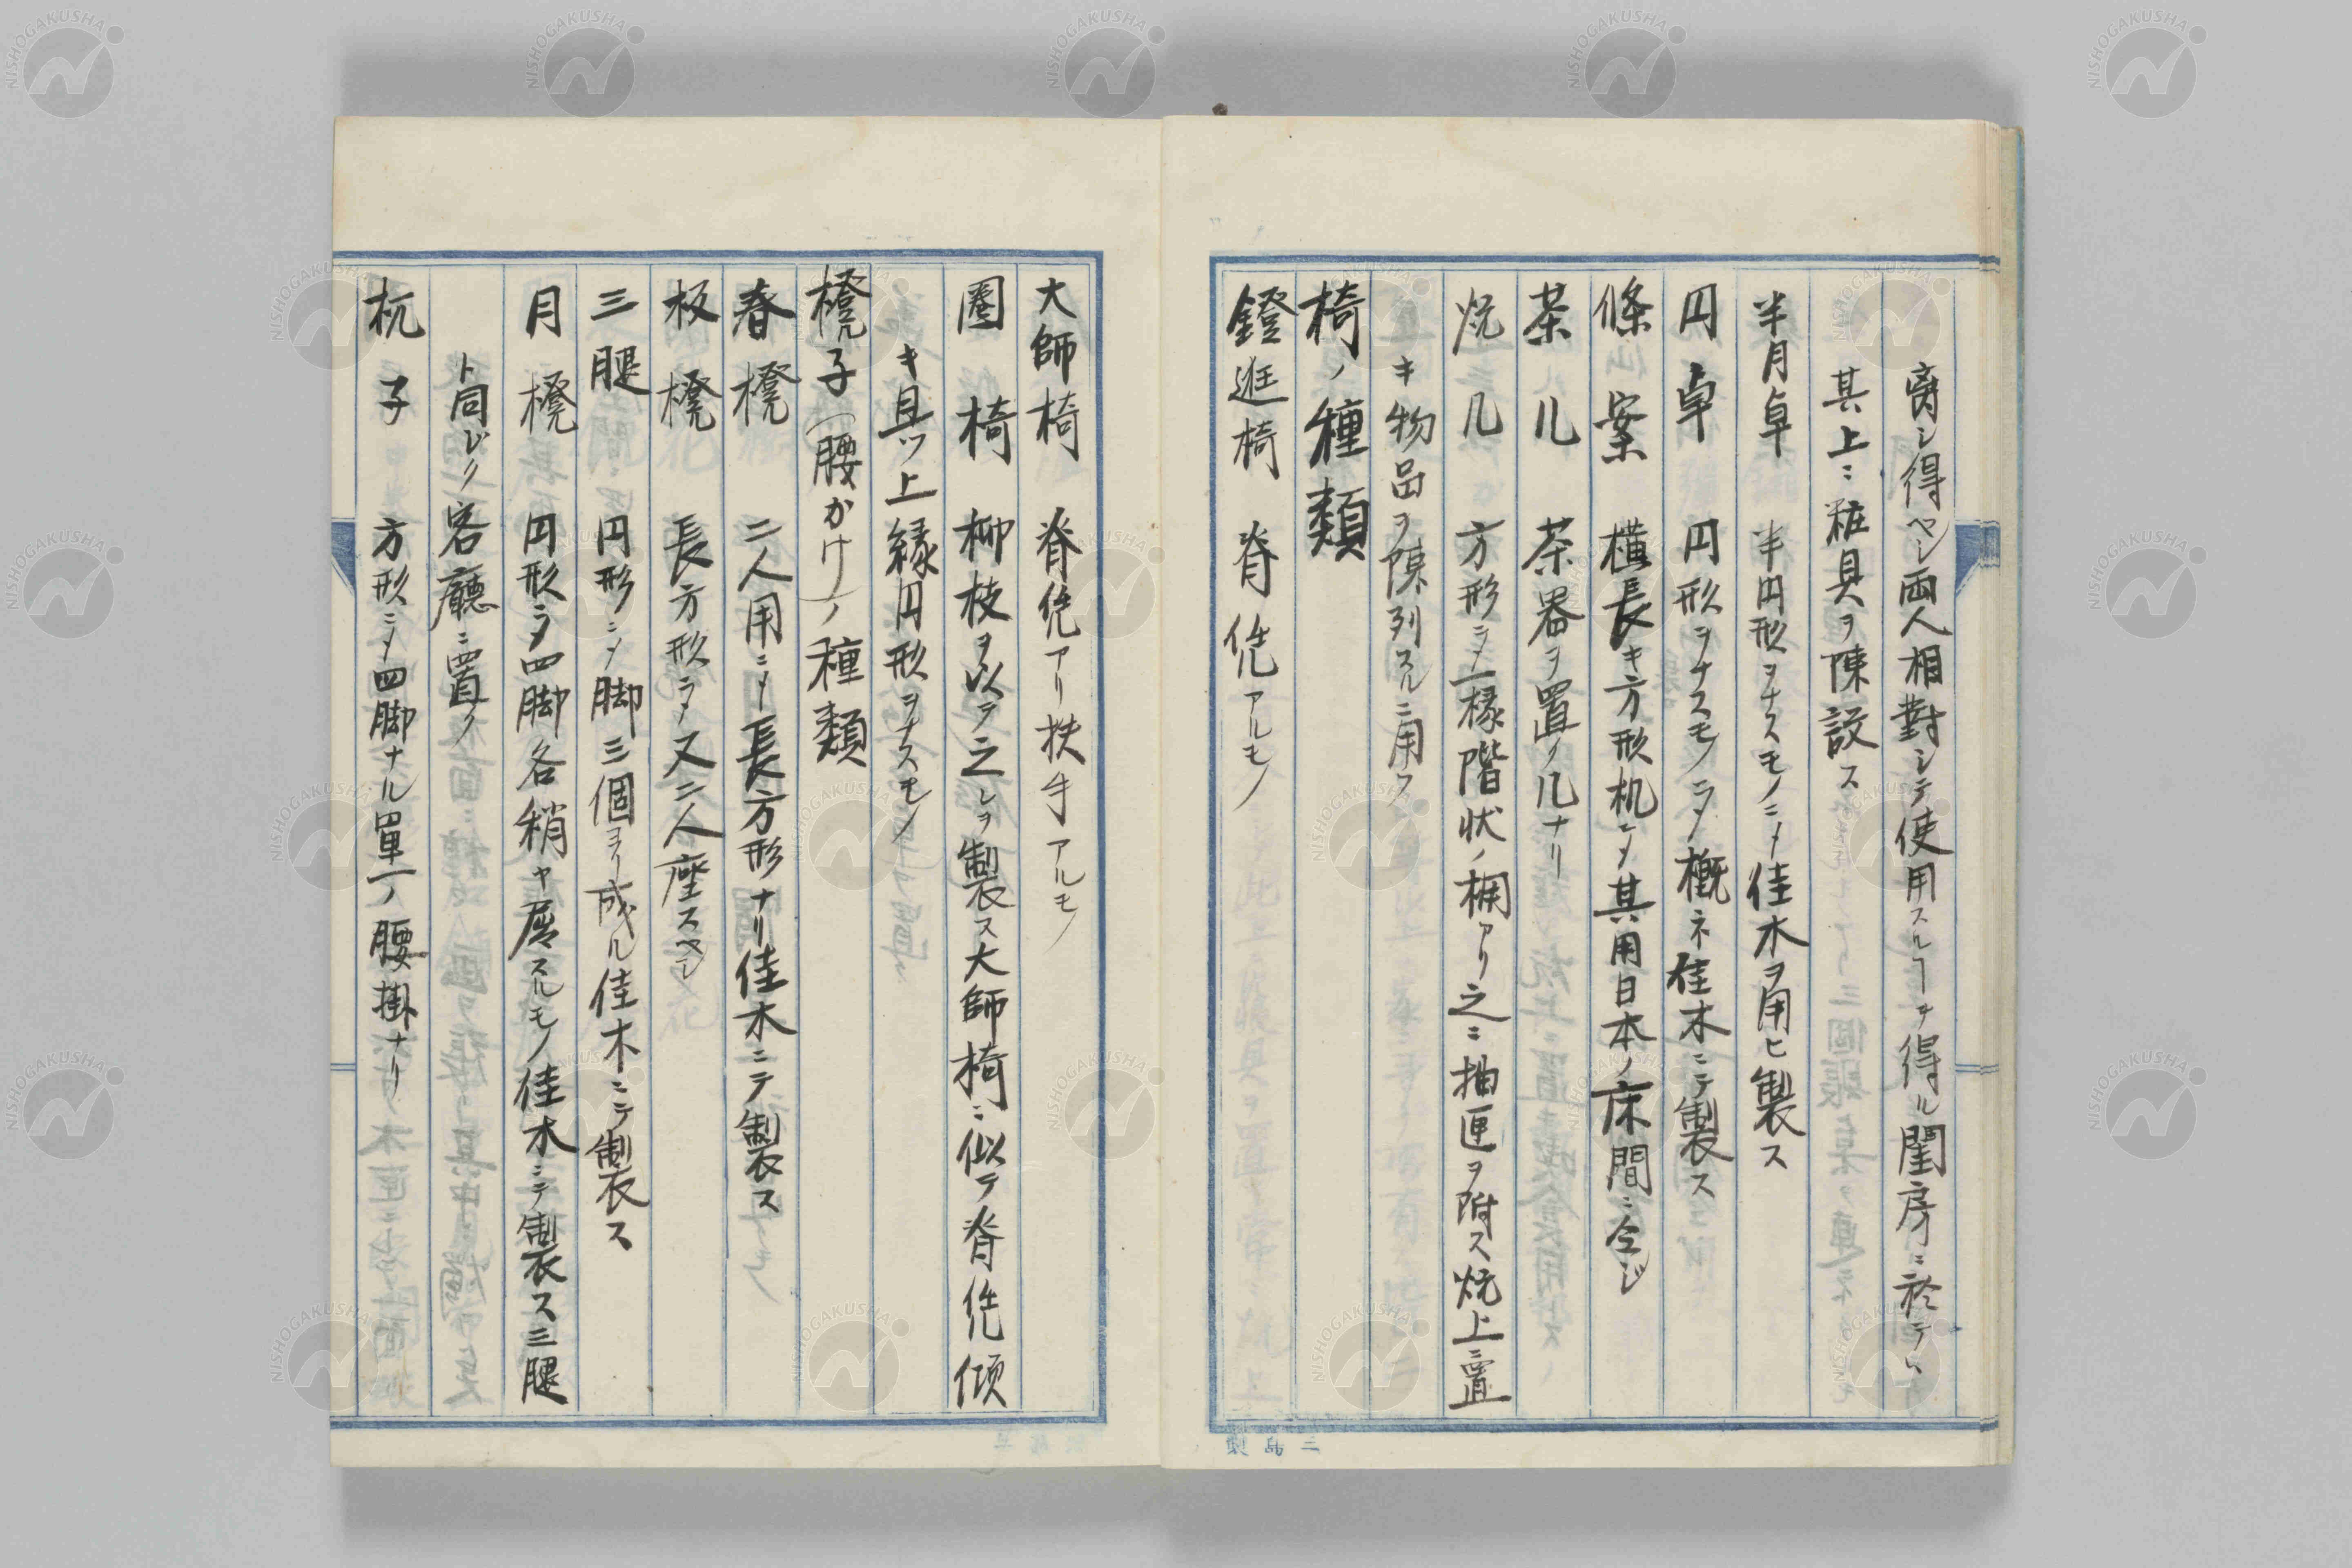 離シ得ベシ両人相對シテ使用スルヿヲ得ル閨房ニ於テハ
其上ニ粧具ヲ陳設ス
半月卓 半円形ヲナスモノニメ佳木ヲ用ヒ製ス
円卓 円形ヲナスモノニメ概ネ佳木ニテ製ス
條案 横長キ方形机ニメ其用日本ノ床間ニ仝ジ
茶几 茶器ヲ置ク几ナリ
炕几 方形ニメ一椽階状ノ棚アリ之ニ抽匣ヲ附ス炕上ニ置
キ物品ヲ陳列スルニ用フ
椅ノ種類
鐙逛椅 脊侊アルモノ
大師椅 脊侊アリ扶手アルモノ
圏椅 柳枝ヲ以テ之レヲ製ス大師椅ニ似テ脊侊傾
キ且ツ上縁円形ヲナスモノ
櫈子(腰かけ)ノ種類
春櫈 二人用ニメ長方形ナリ佳木ニテ製ス
板櫈 長方形ニメ又二人座スベシ
三腿 円形ニメ脚三個ヨリ成ル佳木ニテ製ス
月櫈 円形ニメ四脚各稍ヤ屈スルモノ佳木ニテ製ス三腿
ト同ジク客廳ニ置ク
杌子 方形ニメ四脚ナル單一ノ腰掛ナリ
三島製
NISHOGAKUSHA